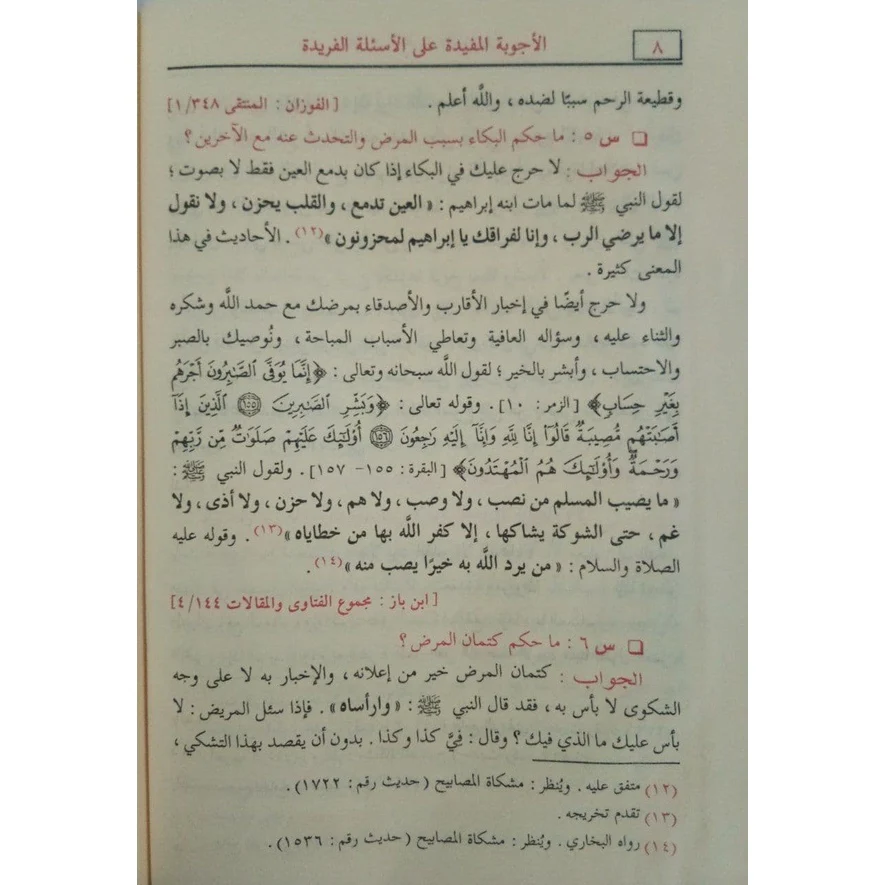 ٨
الأجوبة المفيدة على الأسئلة الفريدة
وقطيعة الرحم سببًا لضده ، واللَّه أعلم . [ الفوزان : المنتقى ١/٣٤٨ ]
❑ س ٥ : ما حكم البكاء بسبب المرض والتحدث عنه مع الآخرين ؟
الجواب : لا حرج عليك في البكاء إذا كان بدمع العين فقط لا بصوت ؛
لقول النبي ﷺ لما مات ابنه إبراهيم : « العين تدمع ، والقلب يحزن ، ولا نقول
إلا ما يرضي الرب ، وإنا لفراقك يا إبراهيم لمحزونون »(١٢) . الأحاديث في هذا
المعنى كثيرة .
ولا حرج أيضًا في إخبار الأقارب والأصدقاء بمرضك مع حمد اللَّه وشكره
والثناء عليه ، وسؤاله العافية وتعاطي الأسباب المباحة ، ونُوصيك بالصبر
والاحتساب ، وأبشر بالخير ؛ لقول اللَّه سبحانه وتعالى : ﴿ إِنَّمَا يُوَفَّى ٱلصَّٰبِرُونَ أَجْرَهُم
بِغَيْرِ حِسَابٍ ﴾ [ الزمر : ١٠ ] . وقوله تعالى : ﴿ وَبَشِّرِ ٱلصَّٰبِرِينَ ١٥٥ ٱلَّذِينَ إِذَآ
أَصَٰبَتْهُم مُّصِيبَةٌ قَالُوٓا۟ إِنَّا لِلَّهِ وَإِنَّآ إِلَيْهِ رَٰجِعُونَ ١٥٦ أُو۟لَٰٓئِكَ عَلَيْهِمْ صَلَوَٰتٌ مِّن رَّبِّهِمْ
وَرَحْمَةٌ وَأُو۟لَٰٓئِكَ هُمُ ٱلْمُهْتَدُونَ ﴾ [ البقرة : ١٥٥ - ١٥٧ ] . ولقول النبي ﷺ :
« ما يصيب المسلم من نصب ، ولا وصب ، ولا هم ، ولا حزن ، ولا أذى ، ولا
غم ، حتى الشوكة يشاكها ، إلا كفر اللَّه بها من خطاياه »(١٣) . وقوله عليه
الصلاة والسلام : « من يرد اللَّه به خيرًا يصب منه »(١٤) .
[ ابن باز : مجموع الفتاوى والمقالات ٤/١٤٤ ]
❑ س ٦ : ما حكم كتمان المرض ؟
الجواب : كتمان المرض خير من إعلانه ، والإخبار به لا على وجه
الشكوى لا بأس به ، فقد قال النبي ﷺ : « وارأساه » . فإذا سئل المريض : لا
بأس عليك ما الذي فيك ؟ وقال : فِيَّ كذا وكذا . بدون أن يقصد بهذا التشكي ،
(١٢) متفق عليه . ويُنظر : مشكاة المصابيح ( حديث رقم : ١٧٢٢ ) .
(١٣) تقدم تخريجه .
(١٤) رواه البخاري . ويُنظر : مشكاة المصابيح ( حديث رقم : ١٥٣٦ ) .